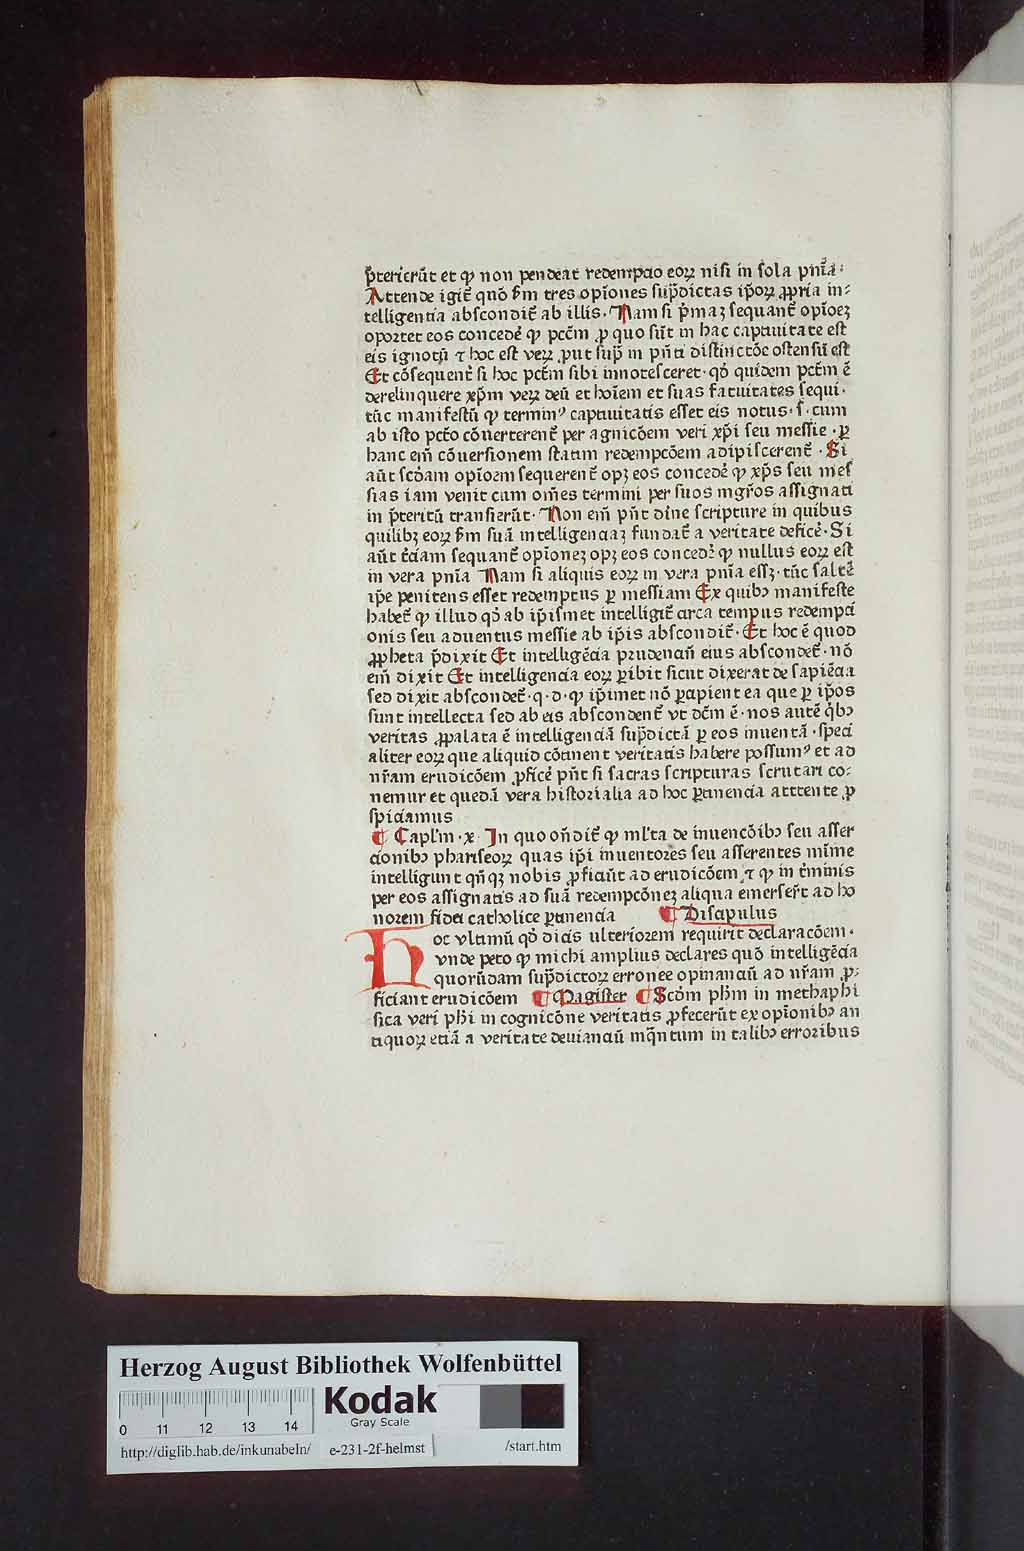 p̄terierūt et ꝙ non pendeat redempcio eoꝝ nisi in sola pn̄ia:
Attende igit̄ quō ẜm tres opīones sup̄dictas ip̄oꝝ ꝓpria in⸗
telligentia abscondit̄ ab illis. Nam si p̄maꝫ sequant̄ opīoeꝫ
oportet eos concedē ꝙ pctm̄ ꝓ quo sūt in hac captiuitate est
eis ignotū ⁊ hoc est veꝝ ꝓut sup̄ in pn̄ti distinctōe ostensū est
Et cōsequent̄ si hoc pctm̄ sibi innotesceret· qd̓ quidem pctm̄ ē
derelinquere xp̄m veꝝ deū et hoīem et suas fatuitates sequi·
tūc manifestū ꝙ terminꝰ captiuitatis esset eis notus· s̄· cum
ab isto pctō cōuerterent̄ per agnicōem veri xp̄i seu messie · ꝑ
hanc em̄ cōuersionem statim redempcōem adipiscerent̄ · Si
aūt scd̓am opīoem sequerent̄ opꝫ eos concedē ꝙ xp̄s seu mes
sias iam venit cum om̄es termini per suos mgr̄os assignati
in p̄teritū transierūt· Non em̄ pn̄t diīne scripture in quibus
quilibꝫ eoꝝ ẜm suā intelligenciaꝫ fundat̄ a veritate deficē· Si
aūt t̄ciam sequant̄ opīoneꝫ opꝫ eos concedē ꝙ nullus eoꝝ est
in vera pn̄ia Nam si aliquis eoꝝ in vera pn̄ia essꝫ· tūc saltē
ip̄e penitens esset redemptus ꝑ messiam Ex quibꝰ manifeste
habet̄ ꝙ illud qd̓ ab ip̄ismet intelligit̄ circa tempus redempci
onis seu aduentus messie ab ip̄is abscondit̄· Et hoc ē quod
ꝓpheta p̄dixit Et intelligēcia prudenciū eius abscondet̄· nō
em̄ dixit Et intelligencia eoꝝ ꝑibit sicut dixerat de sapiēcia
sed dixit abscondet̄· q· d· ꝙ ip̄imet nō ꝑcipient ea que ꝑ ip̄os
sunt intellecta sed ab eis abscondent̄ vt dc̄m ē· nos autē qͥbꝰ
veritas ꝓpalata ē intelligenciā sup̄dictā ꝑ eos inuentā · speci
aliter eoꝝ que aliquid cōtinent veritatis habere possumꝰ et ad
nr̄am erudicōem ꝓficē pn̄t si sacras scripturas scrutari co⸗
nemur et quedā vera historialia ad hoc ꝑtinencia atttente ꝓ
spiciamus
¶ Capl̄m · x· In quo on̄dit̄ ꝙ ml̄ta de inuencōibꝰ seu asser
cionibꝰ phariseoꝝ quas ip̄i inuentores seu asserentes mīme
intelligunt qn̄qꝫ nobis ꝓficiūt ad erudicōem ⁊ ꝙ in t̄minis
per eos assignatis ad suā redempcōneꝫ aliqua emerser̄t ad ho
norem fidei catholice ꝑtinencia ¶ Discipulus
Hoc vltimū qd̓ dicis vlteriorem requirit declaracōem·
vnde peto ꝙ michi amplius declares quō intelligēcia
quorūdam sup̄dictoꝝ erronee opinanciū ad nr̄am ꝓ⸗
ficiant erudicōem ¶ Magister ¶ Scd̓m ph̄m in methaphi
sica veri ph̄i in cognicōne veritatis ꝓfecerūt ex opīonibꝰ an
tiquoꝝ etiā a veritate deuianciū inqͣntum in talibꝰ erroribus
Herzog August Bibliothek Wolfenbüttel
Kodak
Gray Scale
0 11 12 13 14
http://diglib.hab.de/inkunabeln/ e-231-2f-helmst /start.htm